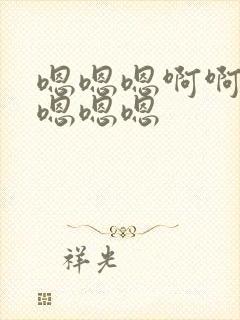 嗯嗯嗯啊啊
嗯嗯嗯
祥光